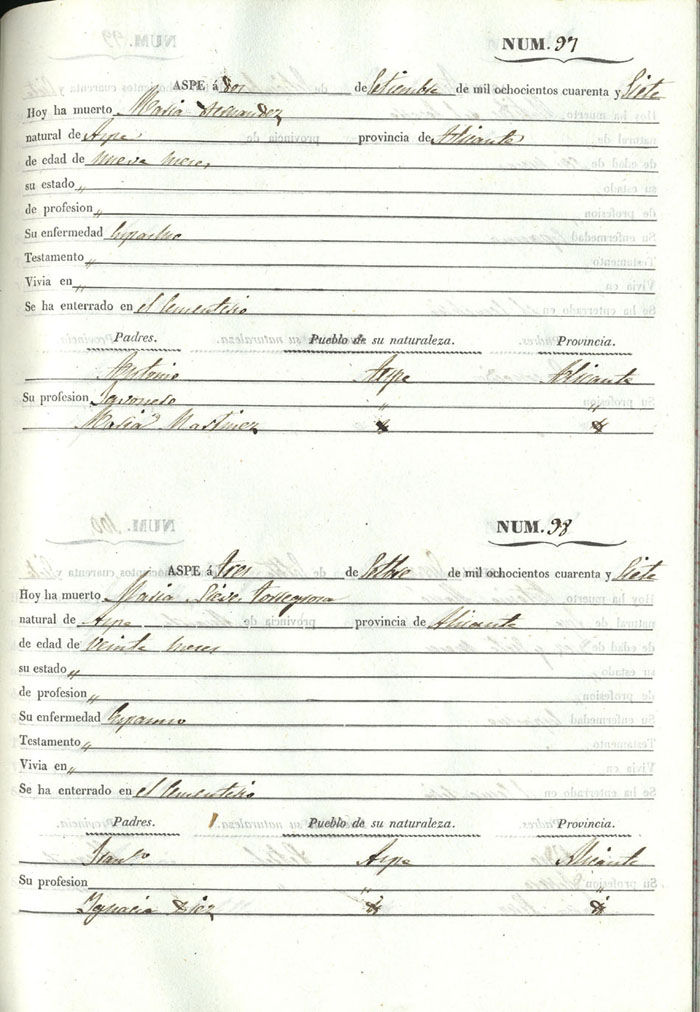 NUM. 97
ASPE á dos de Setiembre de mil ochocientos cuarenta y Siete
Hoy ha muerto Maria Hernandez
natural de Aspe provincia de Alicante
de edad de nueve meses
su estado „
de profesion „
Su enfermedad Espasmo
Testamento „
Vivia en „
Se ha enterrado en el Cementerio
Padres. Pueblo de su naturaleza. Provincia.
Antonio Aspe Alicante
Su profesion Jornalero „ „
Maria Martinez
NUM. 98
ASPE á tres de Setbre de mil ochocientos cuarenta y Siete
Hoy ha muerto Maria Torregrosa
natural de Aspe provincia de Alicante
de edad de veinte meses
su estado „
de profesion „
Su enfermedad Espasmo
Testamento „
Vivia en „
Se ha enterrado en el Cementerio
Padres. Pueblo de su naturaleza. Provincia.
Franco Aspe Alicante
Su profesion „ „
Ignacia Diez